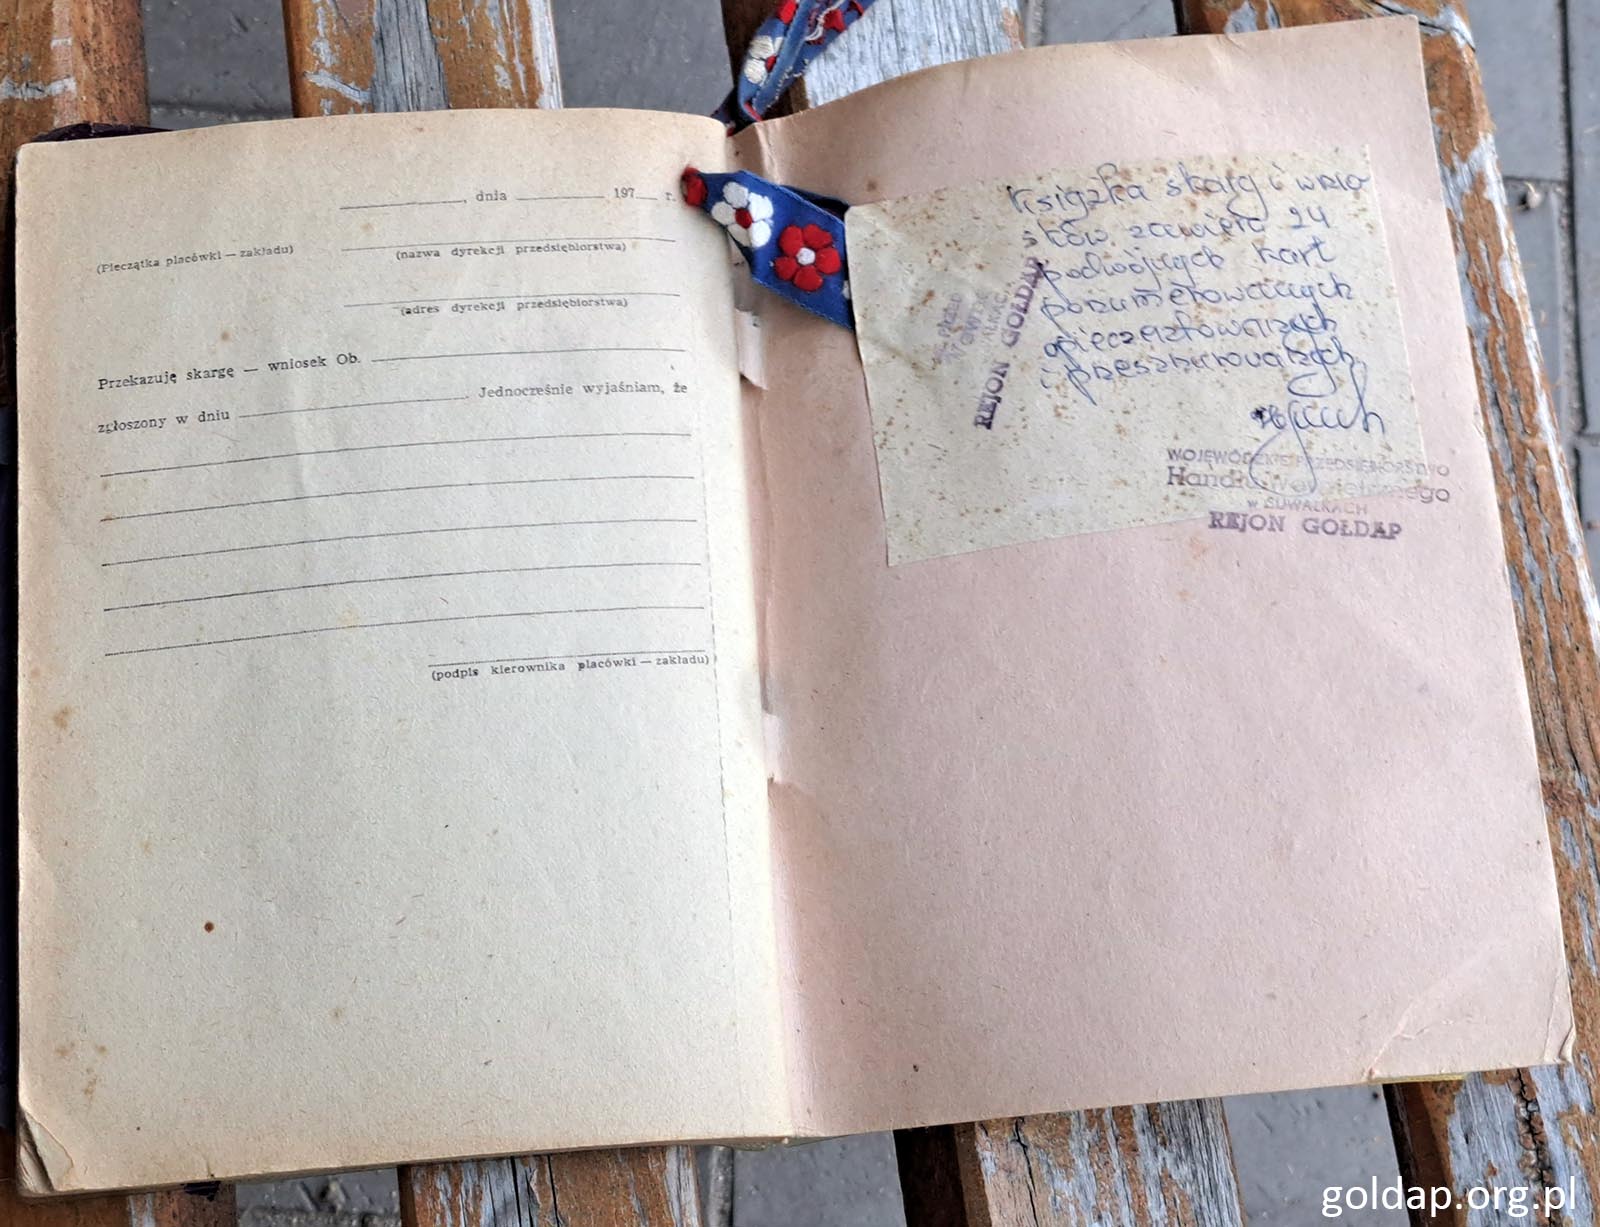 , dnia 197 r.
(Pieczątka placówki — zakładu)
(nazwa dyrekcji przedsiębiorstwa)
(adres dyrekcji przedsiębiorstwa)
Przekazuję skargę — wniosek Ob.
zgłoszony w dniu . Jednocześnie wyjaśniam, że
(podpis kierownika placówki — zakładu)
Książka skarg i wnio
sków zawiera 24
podwójnych kart
ponumerowanych
opieczętowanych
i przesznurowanych
REJON GOŁDAP
WOJEWÓDZKIE PRZEDSIĘBIORSTWO
Handlu Wewnętrznego
w SUWAŁKACH
REJON GOŁDAP
goldap.org.pl